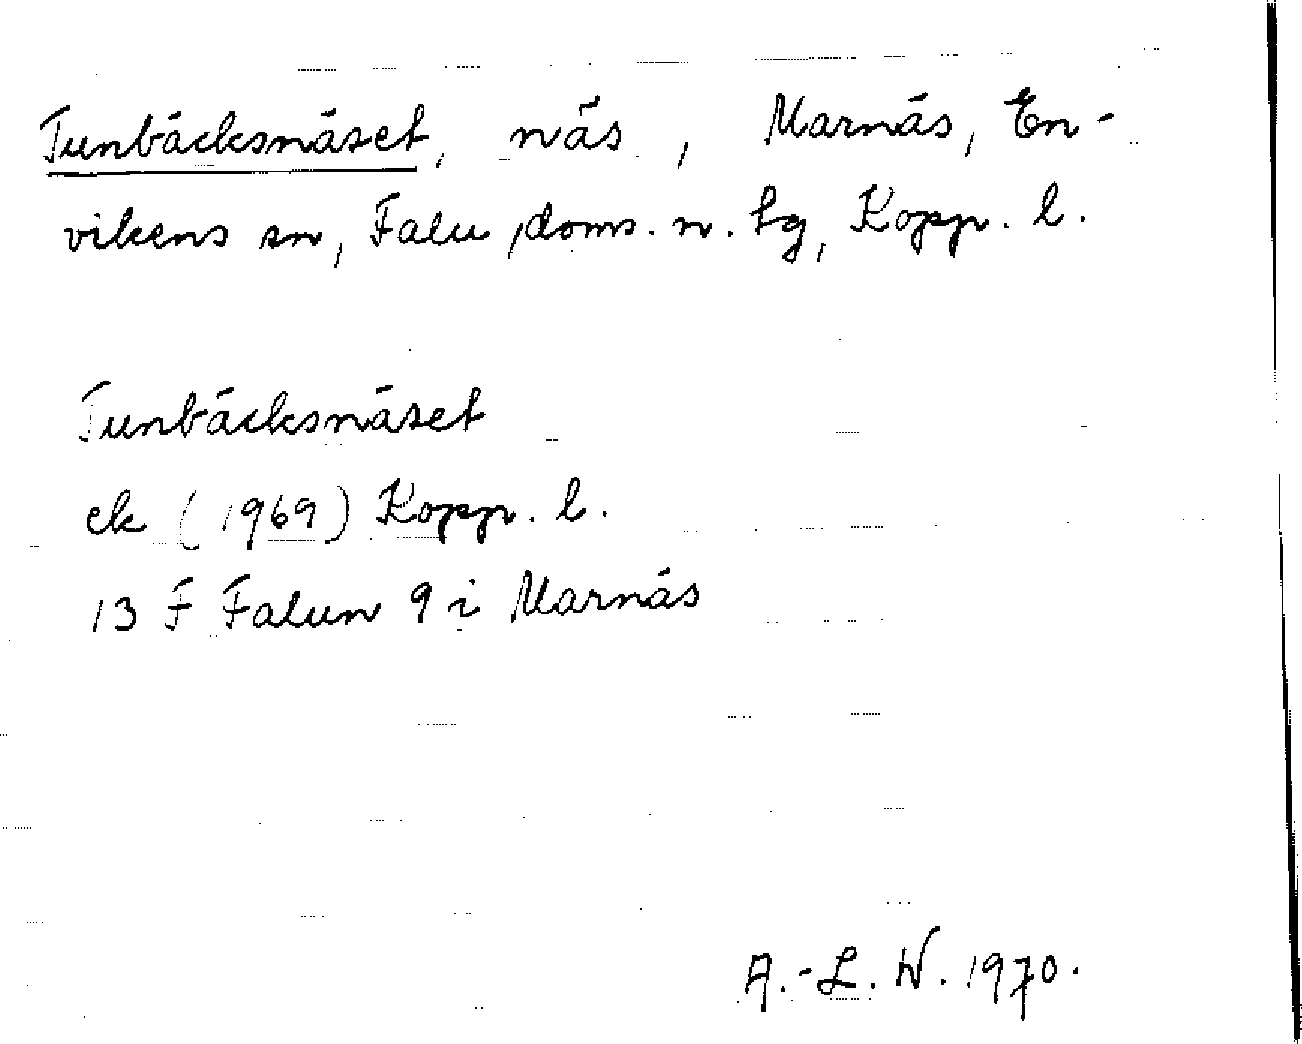 Tunbäcksnäset, näs, Marnäs, En-
vikens sn, Falu doms. n. tg, Kopp. l.
Tunbäcksnäset
ek (1969) Kopp. l.
13 F Falun 9 i Marnäs
A.-L. W. 1970.